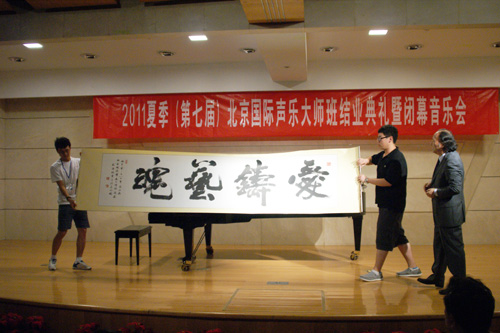 2011夏季(第七届)北京国际声乐大师班结业典礼暨闭幕音乐会
愛鑄藝魂